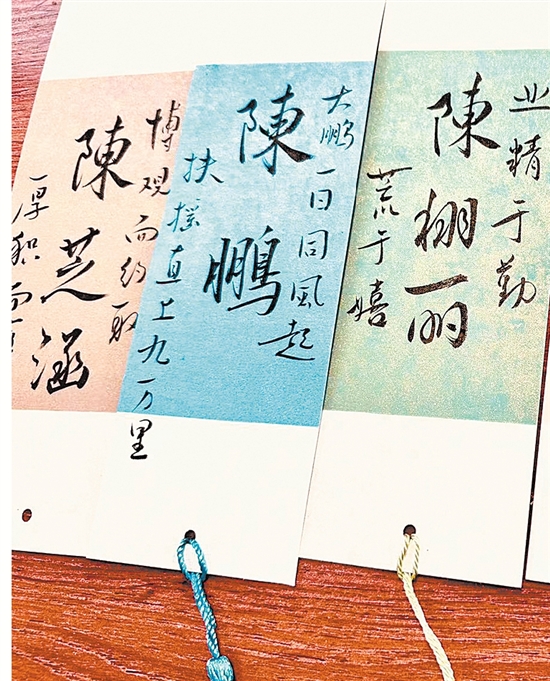 业精于勤
陳栩丽
荒于嬉
大鵬一日同風起
陳鵬
扶摇直上九万里
博观而约取
陳芝涵
厚积而